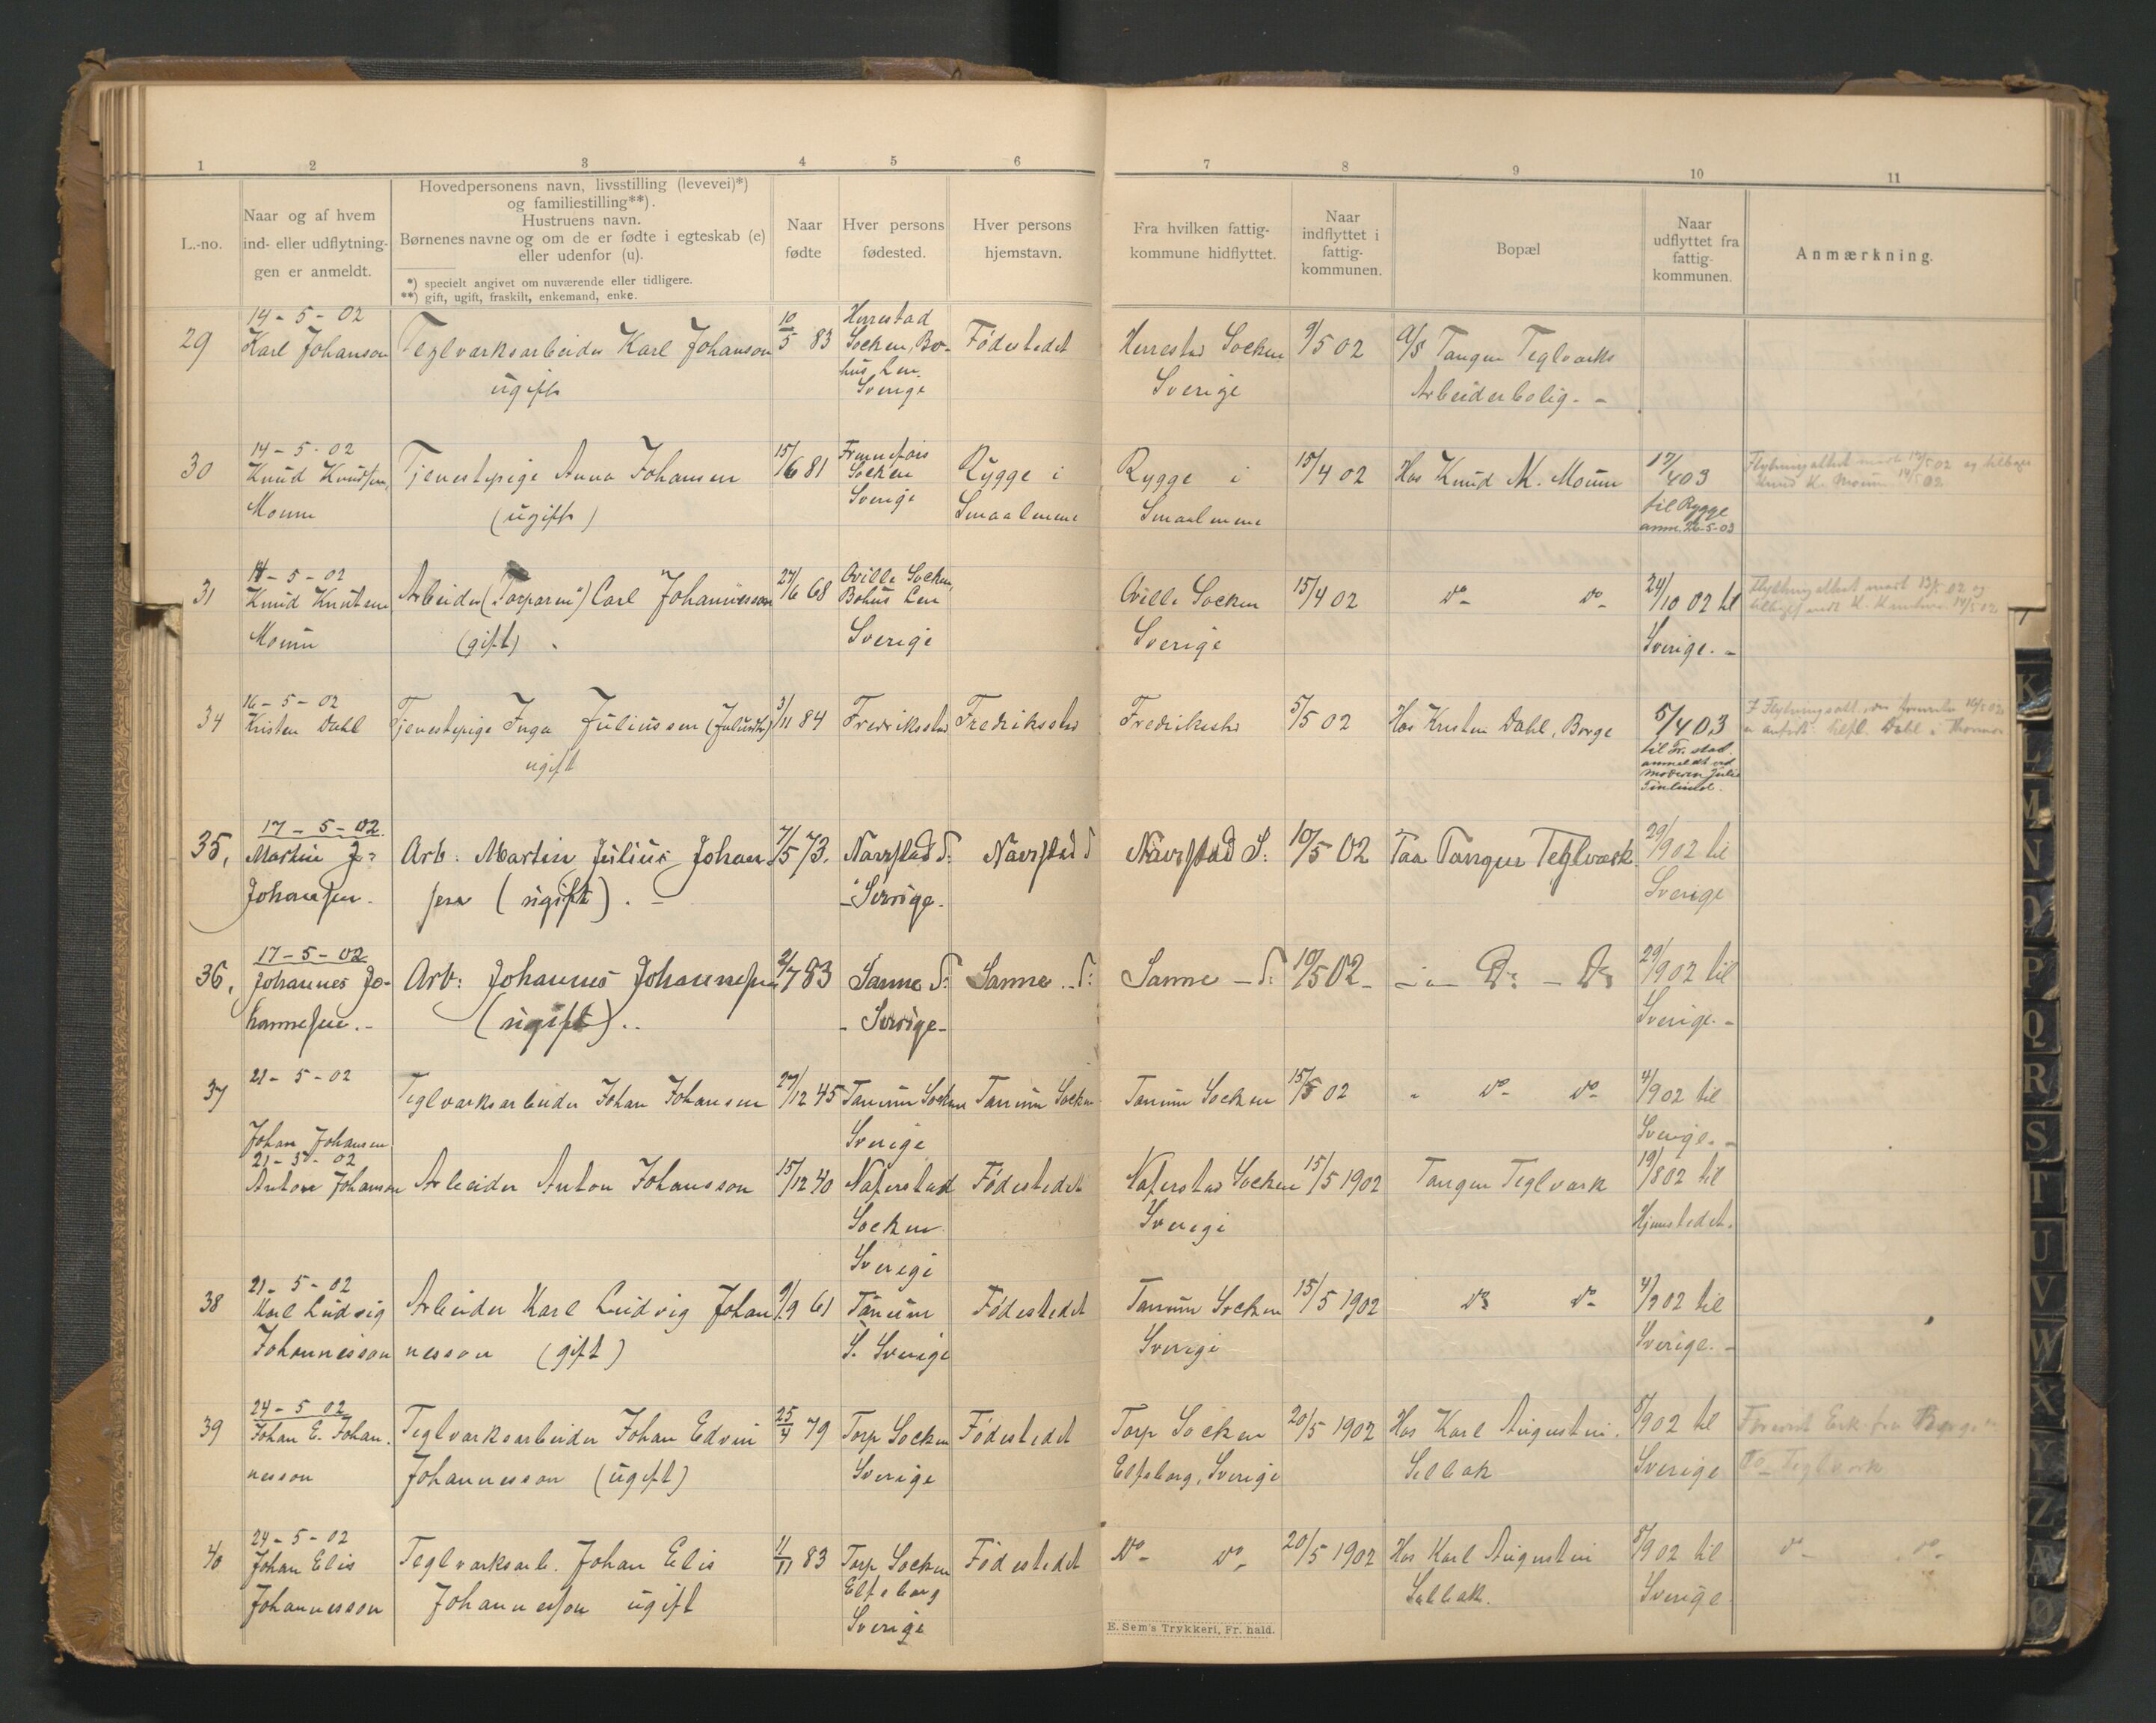 1 2 3 4 5 6 7 8 9 10 11
L.-no.
Naar og af hvem
ind- eller udflytnin-
gen er anmeldt.
Hovedpersonens navn, livsstilling (levevei)*)
og familiestilling**).
Hustruens navn.
Børnenes navne og om de er fødte i egteskab (e)
eller udenfor (u).
*) specielt angivet om nuværende eller tidligere.
**) gift, ugift, fraskilt, enkemand, enke.
Naar
fødte
Hver persons
fødested.
Hver persons
hjemstavn.
Fra hvilken fattig-
kommune hidflyttet.
Naar
indflyttet i
fattig-
kommunen.
Bopæl
Naar
udflyttet fra
fattig-
kommunen.
Anmærkning.
29
14-5-02
Karl Johanson
Teglværksarbeider Karl Johanson
ugift
10/5 83
Herrestad
Socken, Bo-
hus Len.
Sverige
Fødestedet
Herrestad Socken
Sverige
9/5 02
Tangen Teglværks
Arbeiderbolig.-
30
14-5-02
Knud Knudsen
Moum
Tjenestepige Anna Johansen
(ugift)
15/6 81
Socken
Sverige
Rygge i
Smaalenene
Rygge i
Smaalenene
15/4 02
Hos Knud K. Moum
17/4 03
til Rygge
anm. 26-5-03
31
14-5-02
Knud Knutsen
Moum
Arbeider ("Torparen") Carl Johannesson
(gift)
24/6 68
Qville Socken,
Bohus Len
Sverige
Qville Socken
Sverige
15/4 02
do do
24/10 02 til
Sverige.-
34
16-5-02
Kristen Dahl
Tjenestepige Inga Juliussen (Juliusdtr)
ugift
3/11 84
Fredriksstad
Fredriksstad
Fredriksstad
5/5 02
Hos Kristen Dahl, Borge
5/4 03
til Fr.stad.
anmeldt ved
moderen Julie
35.
17-5-02.
Martin J.
Johansen.
Arb. Martin Julius Johan-
sen (ugift).-
7/5 73.
Navrstad S.
Sverige.
Navrstad S
Navrstad S.
10/5 02
Paa Tangen Teglværk
29/9 02 til
Sverige
36.
17-5-02
Johannes Jo-
hannesen.-
Arb: Johannes Johannesen
(ugift)..
2/7 83
Sanne S:
- Sverige-
Sanne - S:
Sanne - S:
10/5 02-
Do - Do
29/9 02 til
Sverige.-
37
21-5-02
Johan Johansen
Teglværksarbeider Johan Johansen
27/12 45
Tanum Socken
Sverige
Tanum Socken
Tanum Socken
15/5 02
" do do
4/9 02 til
Sverige.-
21-5-02
Anton Johanson
Arbeider Anton Johansson
15/12 40
Naverstad
Socken
Sverige
Fødestedet
Naverstad Socken
Sverige
15/5 1902
Tangen Teglværk
19/8 02 til
Hjemstedet.
38
21-5-02
Karl Ludvig
Johannesson
Arbeider Karl Ludvig Johan
nesson (gift)
9/9 61
Tanum
S. Sverige
Fødestedet
Tanum Socken
Sverige
15/5 1902
do do
4/9 02 til
Sverige.-
39
24-5 02
Johan E. Johan.
nesson
Teglværksarbeider Johan Edvin
Johannesson (ugift)
25/4 79
Torp Socken
Sverige
Fødestedet
Torp Socken
Elfsborg, Sverige
20/5 1902
Hos Karl Augustin.
Sellebak
8/9 02 til
Sverige
Teglværk
40
24-5-02
Johan Elis
Johannesson
Teglværksarb. Johan Elis
Johannesson ugift
11/11 83
Torp Socken
Elfsborg
Sverige
Fødestedet
Do do
20/5 1902
Hos Karl Augustin
Sellebak.
8/9 02 til
Sverige
do do
E. Sem's Trykkeri, Fr.hald.
K
L
M
N
O
P
Q
R
S
T
U
V
W
X
Y
Z